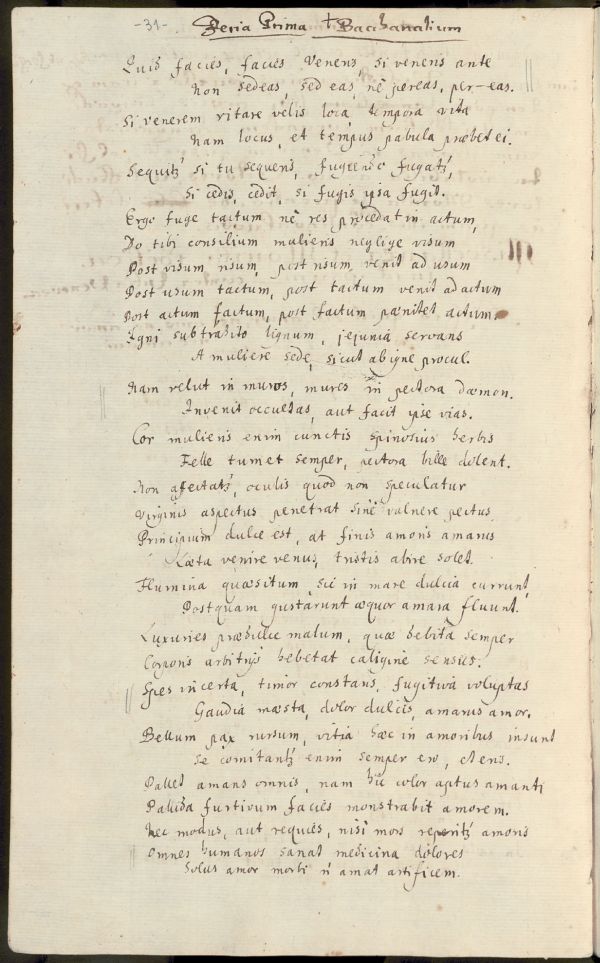 -31-
Feria Prima † Bacchanalium
Quid facies, facies Veneris, si veneris ante
Non sedeas, sed eas, ne pereas, per-eas.
Si venerem vitare velis loca, tempora vita
Nam locus, et tempus pabula præbet ei.
Sequitz si tu sequeris, fugiendo fugatz,
Si cedis, cedit, si fugis ipsa fugit.
Ergo fuge tactum ne res procedat in actum,
Do tibi consilium mulieris neglige visum
Post visum risum, post risum venit ad usum
Post usum tactum, post tactum venit ad actum
Post actum factum, post factum pænitet actum.
Igni subtrahito lignum, jejunia servans
A muliere sede, sicut ab igne procul.
Nam velut in muros, mures in pectora dæmon.
Invenit occultas, aut facit ipse vias.
Cor mulieris enim cunctis spinosius herbis
Felle tumet semper, pectora bille dolent.
Non afectatz, oculis quod non speculatur
Virginis aspectus penetrat sine vulnere pectus
Principium dulce est, at finis amoris amarus
Læta venire venus, tristis abire solet.
Flumina quæsitum, sic in mare dulcia currunt,
Postquam gustarunt æquor amara fluunt.
Luxuries malum, quæ debita semper
Corporis arbitrijs hebetat caligine sensus.
Spes incerta, timor constans, fugitiva voluptas
Gaudia mæsta, dolor dulcis, amarus amor.
Bellum pax rursum, vitia hæc in amoribus insunt
Se comitantz enim semper ero, et ens.
Pallet amans omnis, nam hic color aptus amanti
Pallida furtivum facies monstrabit amorem.
Nec modus, aut requies, nisi mors reperitz amoris
Omnes humanos sanat medicina dolores
Solus amor morbi n̄ amat artificem.